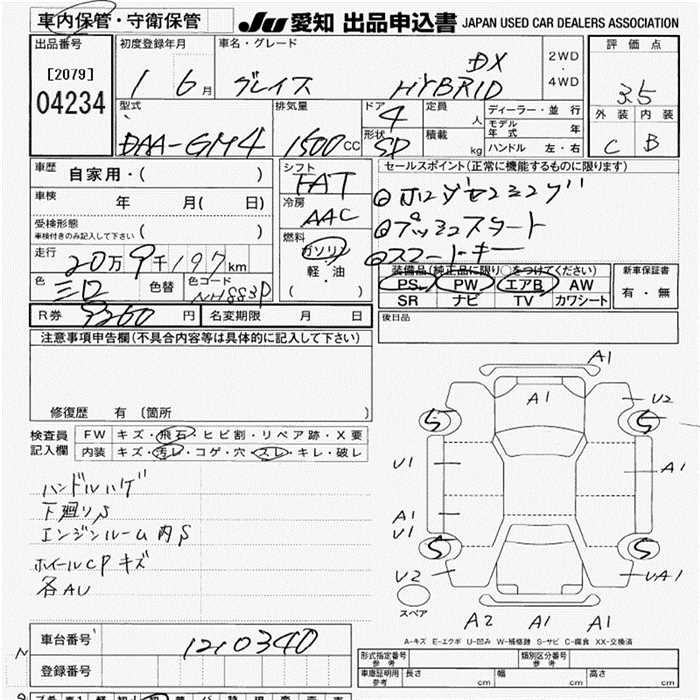 車内保管・守衛保管 JU 愛知 出品申込書 JAPAN USED CAR DEALERS ASSOCIATION
出品番号 初度登録年月 車名・グレード 評価点
[2079] 04234
1 6月 グレイス DX HYBRID 2WD・4WD 3.5
型式 排気量 ドア 定員 ディーラー・並行 外装 内装
DAA-GM4 1500CC 4 人 モデル年式 年 C B
形状 5D 積載 kg ハンドル 左・右
車歴 自家用・( ) シフト FAT セールスポイント(正常に機能するものに限ります)
車検 年 月( 日) 冷房 AAC
受検形態 車検付きのみ記入して下さい ( )
◎プッシュスタート
走行 20万9千197km 燃料 ガソリン ◎スマートキー
軽・油
( )
色 色替 色コード NH883P
装備品(純正品に限り○をつけてください) 新車保証書
PS PW エアB AW 有・無
SR ナビ TV カワシート
R券 9260円 名変期限 月 日 後日品
注意事項申告欄(不具合内容等は具体的に記入して下さい)
修復歴 有 (箇所 )
検査員記入欄 FW キズ・飛石・ヒビ割・リペア跡・X要
内装 キズ・汚レ・コゲ・穴・スレ・キレ・破レ
ハンドルハゲ
下廻りS
エンジンルーム内S
ホイールCPキズ
各AU
A1
A1
U2
S S
U1 A1
A1
U1
S S
U2 UA1
スペア
A2 A1 A1
A-キズ E-エクボ U-凹み W-補修跡 S-サビ C-腐食 XX-交換済
車台番号 1210340
登録番号
形式指定番号 参考 類別区分番号 参考
車庫証明用 参考 長さ cm 幅 cm 高さ cm